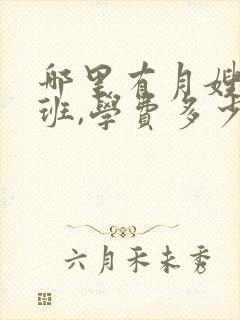 哪里有月嫂
班,學費多少
六月禾未秀